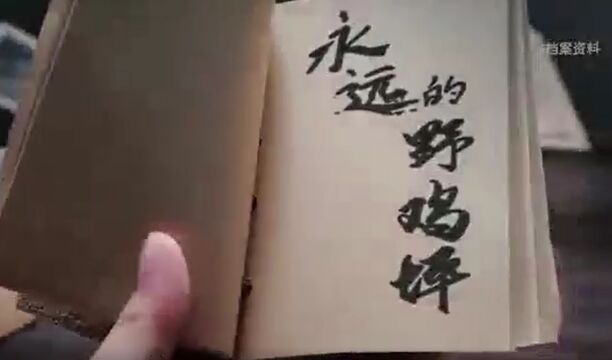 永远的野鸡坪
档案资料